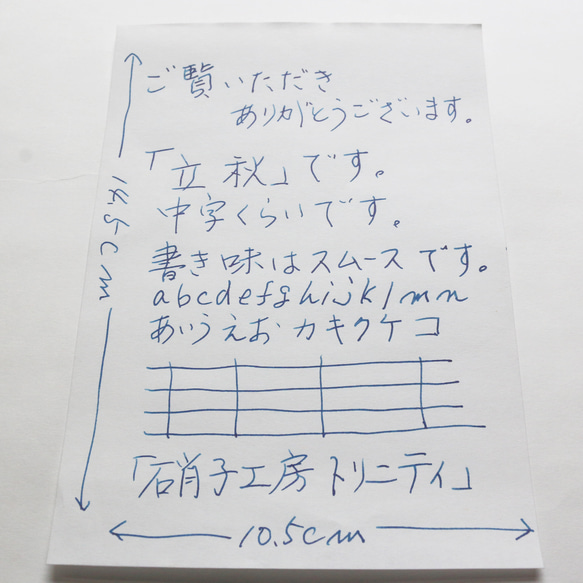 ご覧いただき
ありがとうございます。
「立秋」です。
中字くらいです。
書き味はスムースです。
abcdefghijklmn
あいうえおカキクケコ
「硝子工房トリニティ」
14.5cm
10.5cm